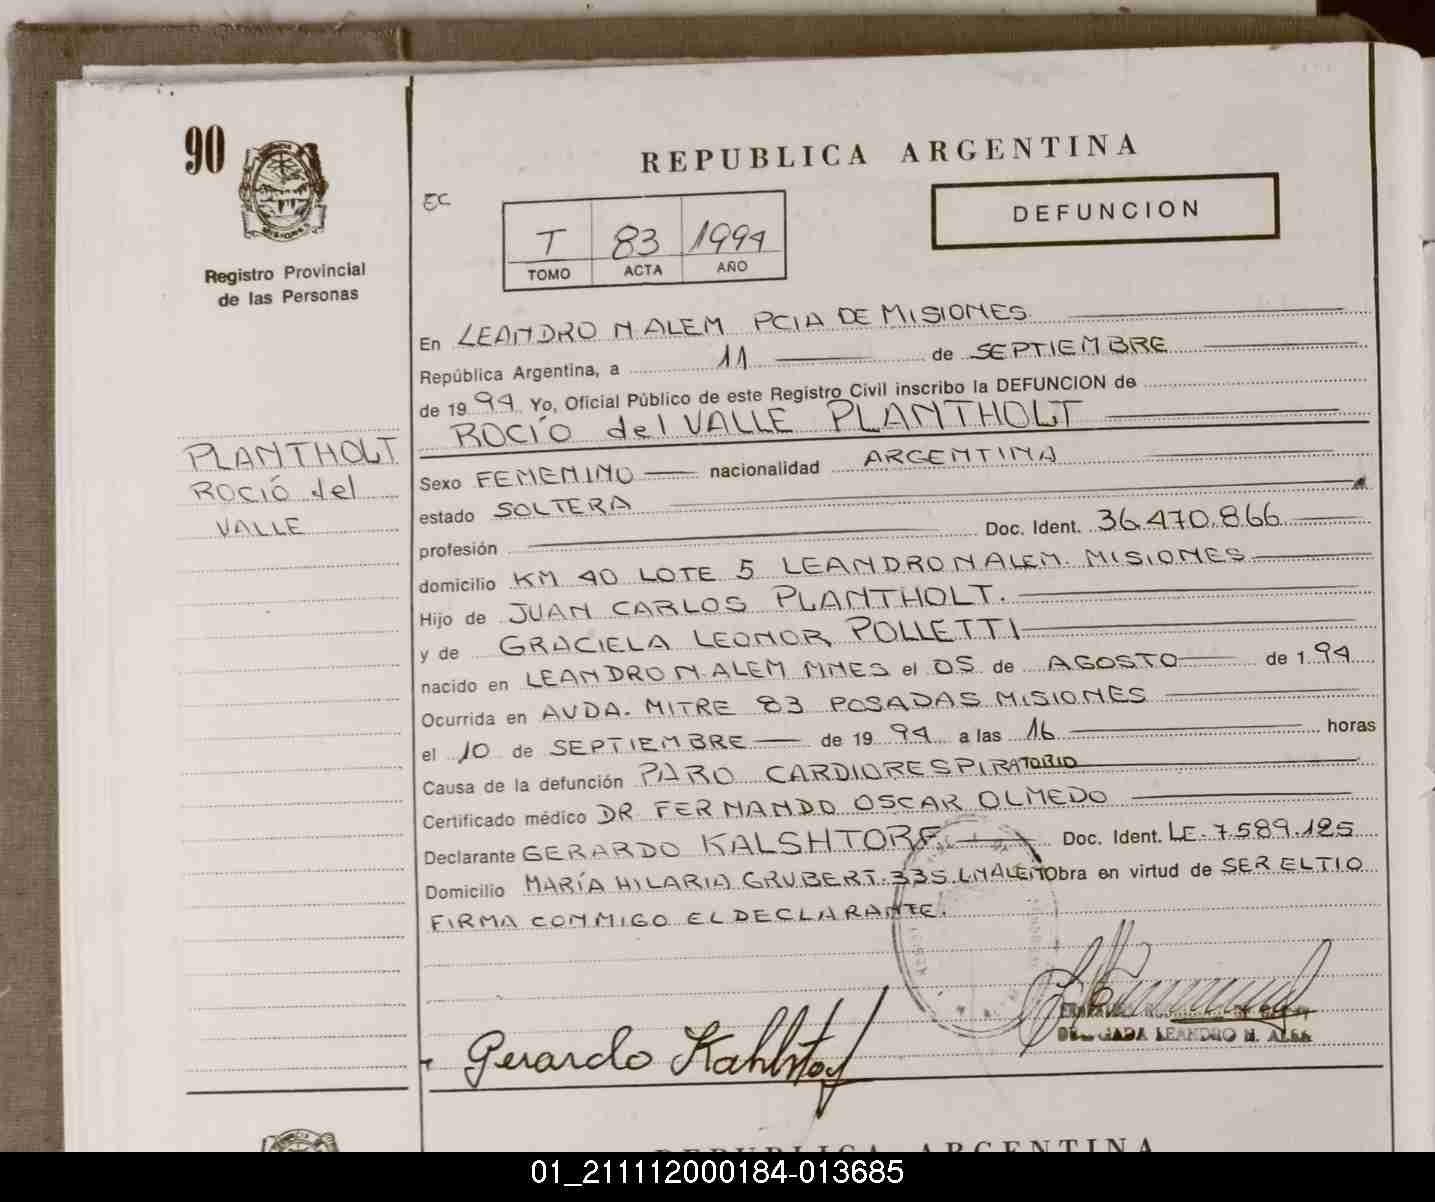 90
REPUBLICA ARGENTINA
EC
DEFUNCION
T 83 1994
TOMO ACTA AÑO
Registro Provincial
de las Personas
En LEANDRO N ALEM PCIA DE MISIONES
República Argentina, a 11 de SEPTIEMBRE
de 1994 Yo, Oficial Público de este Registro Civil inscribo la DEFUNCION de
ROCÍO del VALLE PLANTHOLT
PLANTHOLT
ROCIÓ del
VALLE
Sexo FEMENINO nacionalidad ARGENTINA
estado SOLTERA
profesión Doc. Ident. 36.470.866
domicilio KM 40 LOTE 5 LEANDRO N ALEM. MISIONES
Hijo de JUAN CARLOS PLANTHOLT.
y de GRACIELA LEONOR POLLETTI
nacido en LEANDRO N. ALEM MNES el 05 de AGOSTO de 1.94
Ocurrida en AVDA. MITRE 83 POSADAS MISIONES
el 10 de SEPTIEMBRE de 1994 a las 16 horas
Causa de la defunción PARO CARDIORESPIRATORIO
Certificado médico DR FERNANDO OSCAR OLMEDO
Declarante GERARDO KALSHTORF Doc. Ident. LE. 7.589.125
Domicilio MARÍA HILARIA GRUBERT. 335 L.N ALEM Obra en virtud de SER EL TIO
FIRMA CONMIGO EL DECLARANTE.
Gerardo Kahlstorf
DELEGADA LEANDRO N. ALEM
REPUBLICA ARGENTINA
01_211112000184-013685